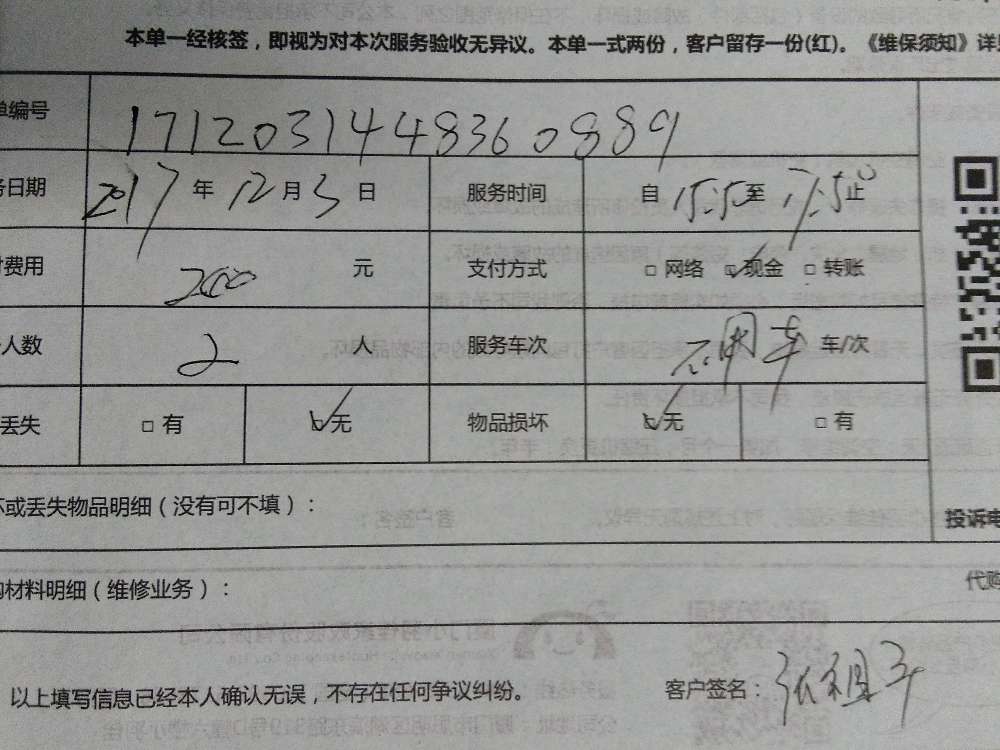 本单一经核签，即视为对本次服务验收无异议。本单一式两份，客户留存一份(红)。《维保须知》详见
单编号 1712031448360889
务日期 2017 年 12 月 3 日 服务时间 自 15:50 至 17:50 止
费用 200 元 支付方式 □ 网络 ☑ 现金 □ 转账
人数 2 人 服务车次 不用车 车/次
丢失 □ 有 ☑ 无 物品损坏 ☑ 无 □ 有
坏或丢失物品明细（没有可不填）：
投诉电
购材料明细（维修业务）：
代购
以上填写信息已经本人确认无误，不存在任何争议纠纷。 客户签名：张祖